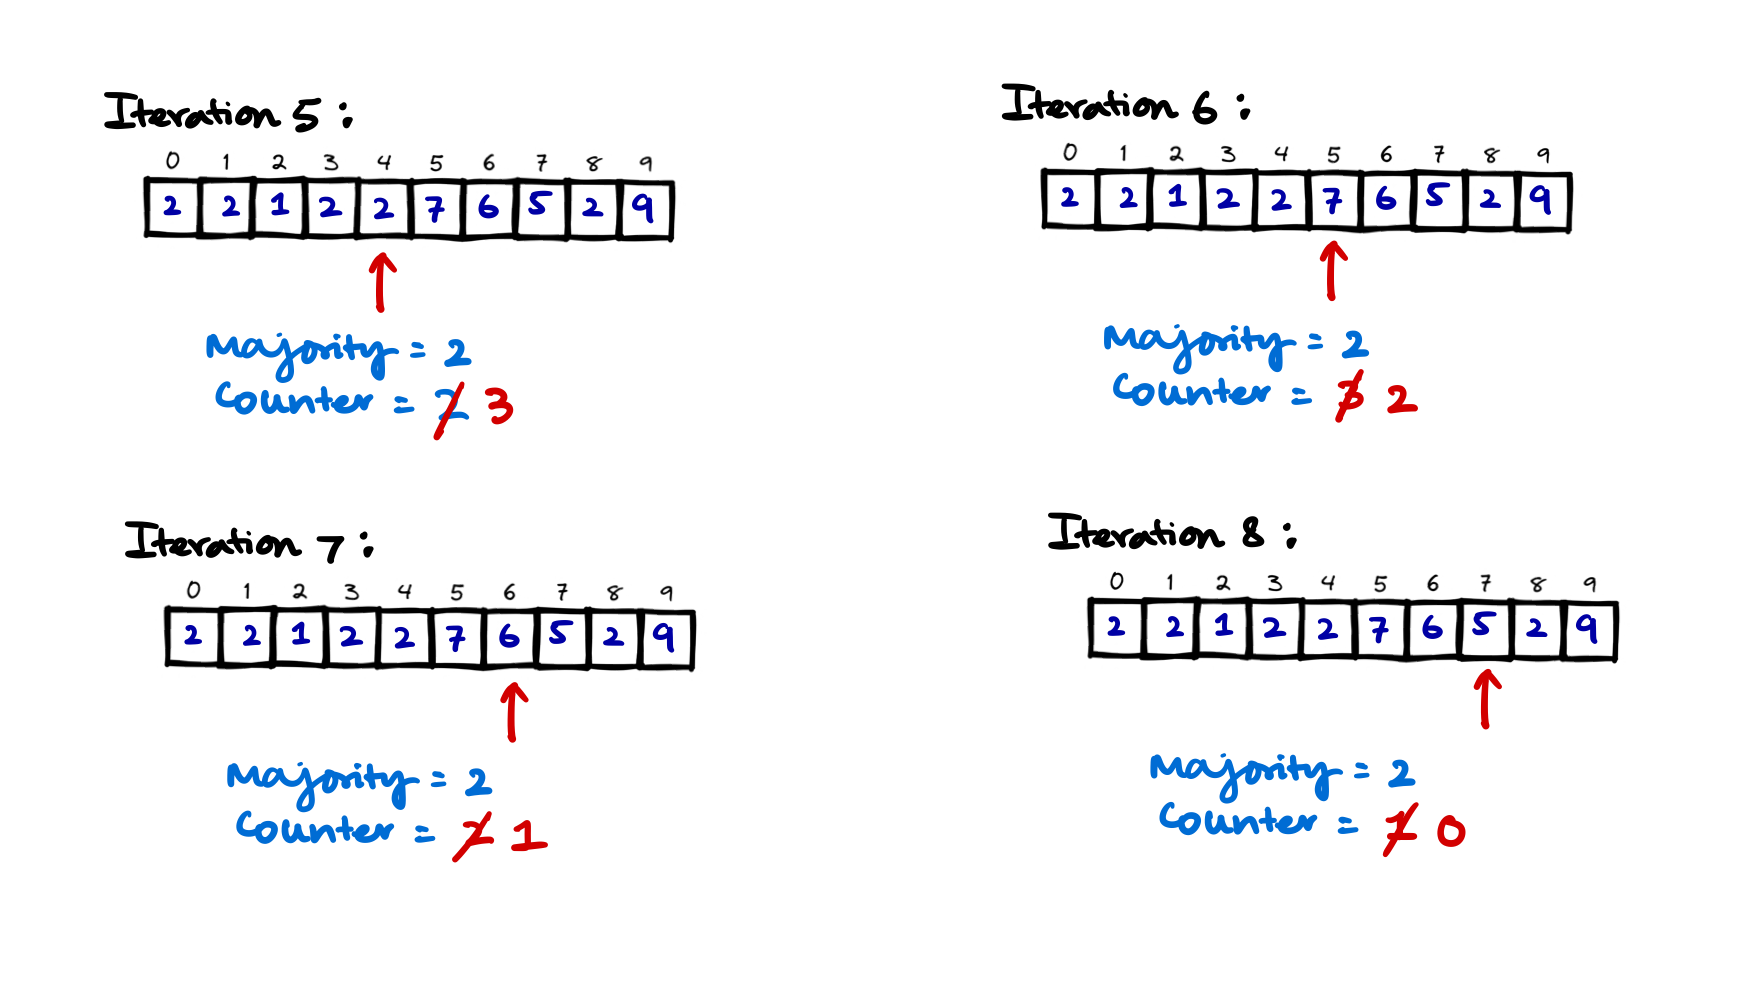 Iteration 5:
0 1 2 3 4 5 6 7 8 9
2 2 1 2 2 7 6 5 2 9
Majority = 2
Counter = 2 3
Iteration 6:
0 1 2 3 4 5 6 7 8 9
2 2 1 2 2 7 6 5 2 9
Majority = 2
Counter = 3 2
Iteration 7:
0 1 2 3 4 5 6 7 8 9
2 2 1 2 2 7 6 5 2 9
Majority = 2
Counter = 2 1
Iteration 8:
0 1 2 3 4 5 6 7 8 9
2 2 1 2 2 7 6 5 2 9
Majority = 2
Counter = 1 0